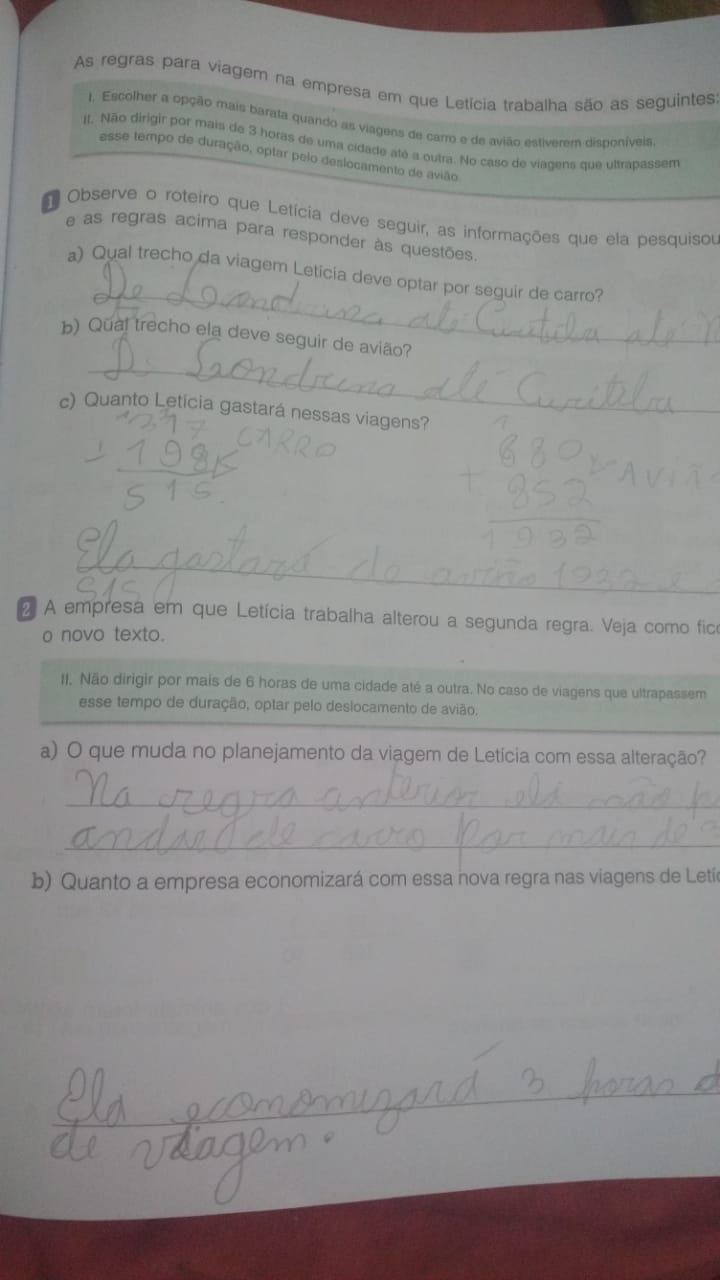 As regras para viagem na empresa em que Letícia trabalha são as seguintes:
I. Escolher a opção mais barata quando as viagens de carro e de avião estiverem disponíveis.
II. Não dirigir por mais de 3 horas de uma cidade até a outra. No caso de viagens que ultrapassem
esse tempo de duração, optar pelo deslocamento de avião.
1 Observe o roteiro que Letícia deve seguir, as informações que ela pesquisou
e as regras acima para responder às questões.
a) Qual trecho da viagem Letícia deve optar por seguir de carro?
De Londrina até Curitiba até
b) Qual trecho ela deve seguir de avião?
D. Londrina até Curitiba
c) Quanto Letícia gastará nessas viagens?
317
+ 198 CARRO
515
680
+ 852 AVIÃ
1932
Ela gastará de avião 1932 e
515
2 A empresa em que Letícia trabalha alterou a segunda regra. Veja como fico
o novo texto.
II. Não dirigir por mais de 6 horas de uma cidade até a outra. No caso de viagens que ultrapassem
esse tempo de duração, optar pelo deslocamento de avião.
a) O que muda no planejamento da viagem de Letícia com essa alteração?
Na regra anterior ela não p
andar de carro por mais de 3
b) Quanto a empresa economizará com essa nova regra nas viagens de Letíc
Ela economizará 3 horas d
de viagem.